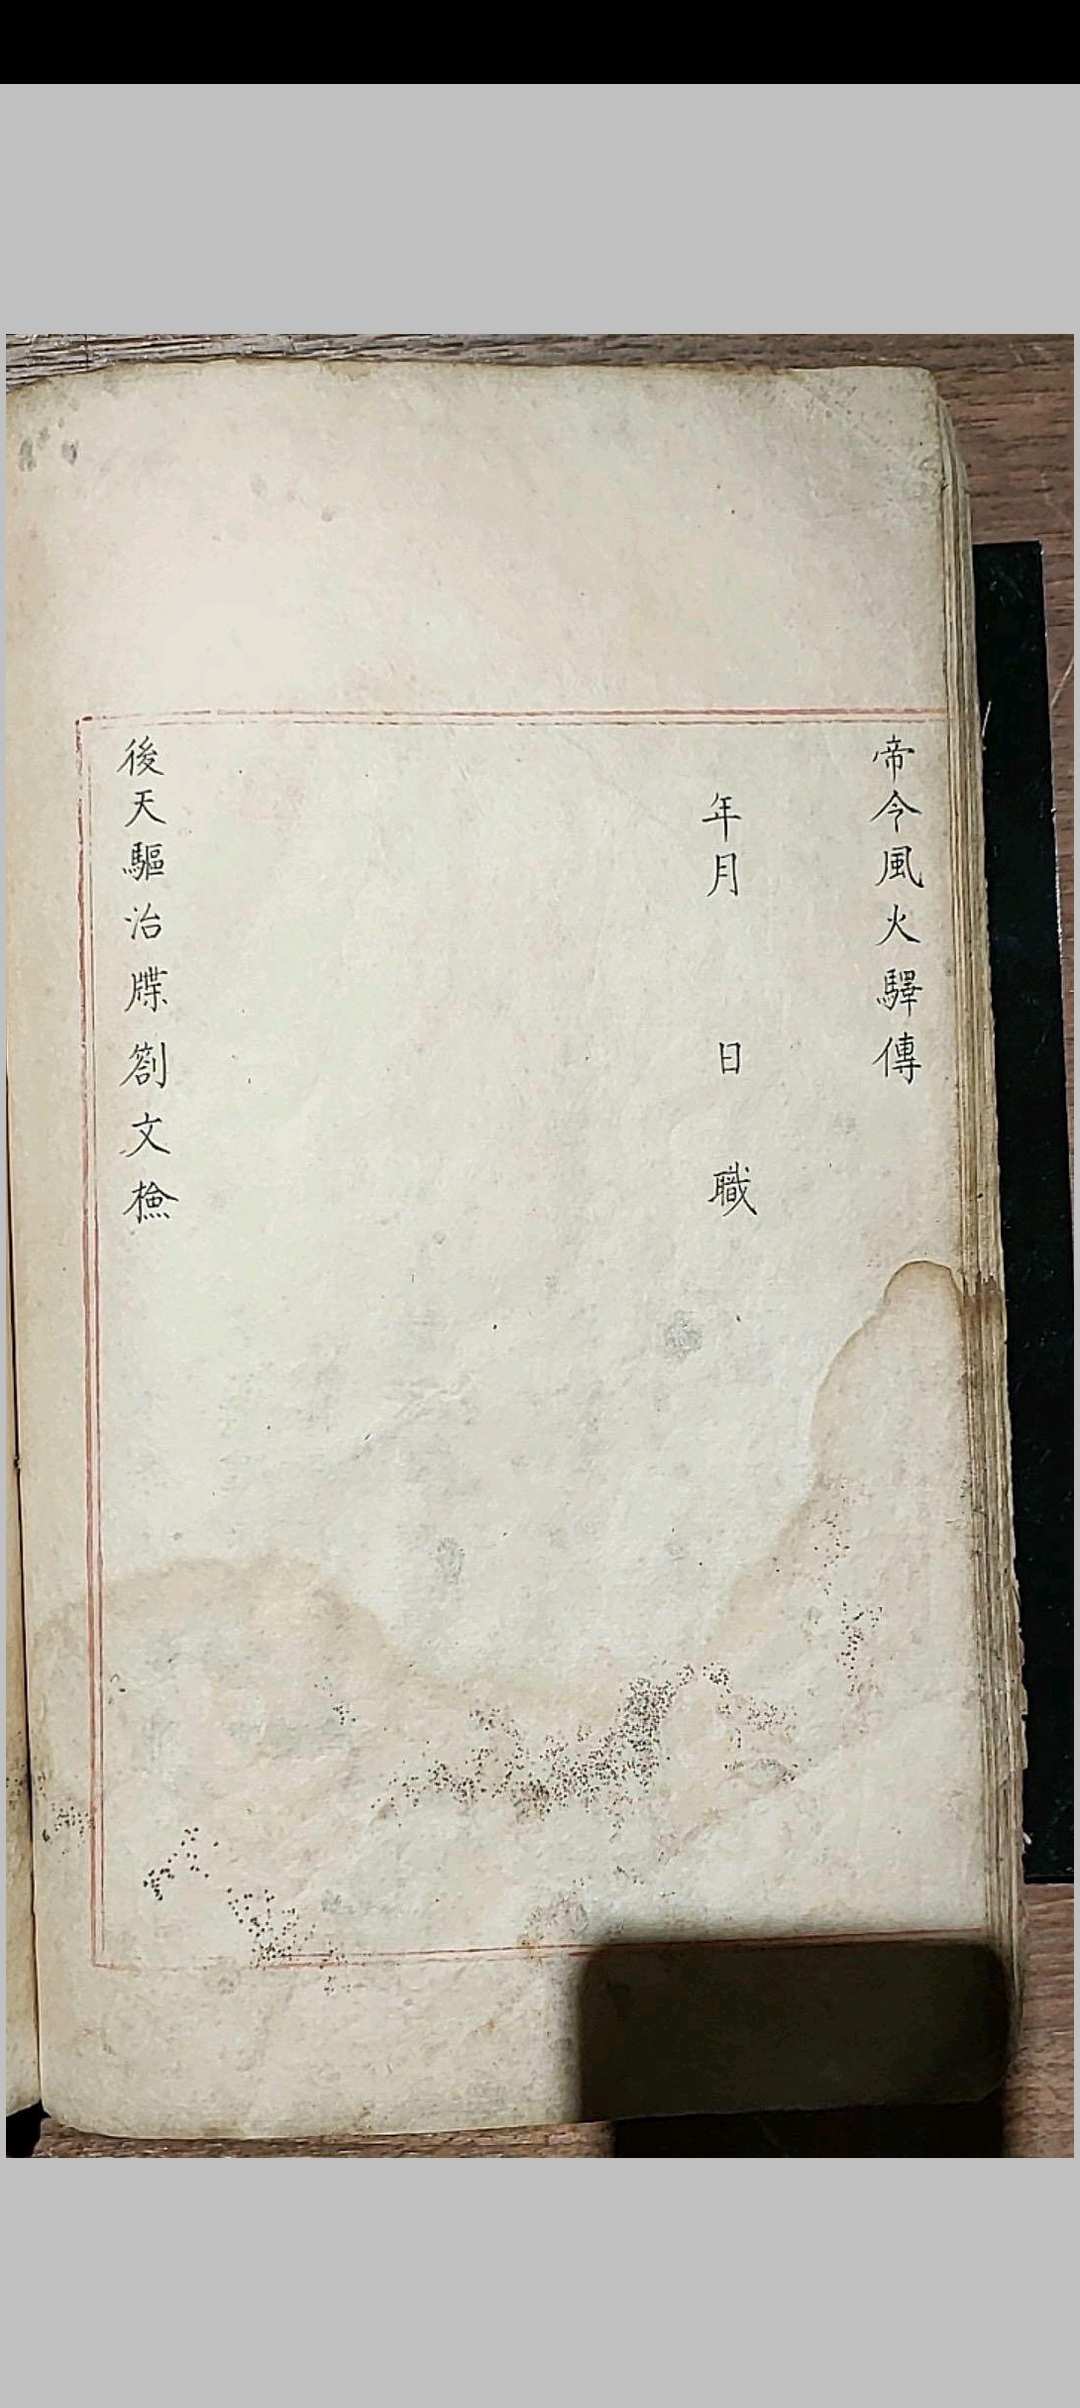 帝令風火驛傳
年月　日　職
後天驅治牒劄文檢